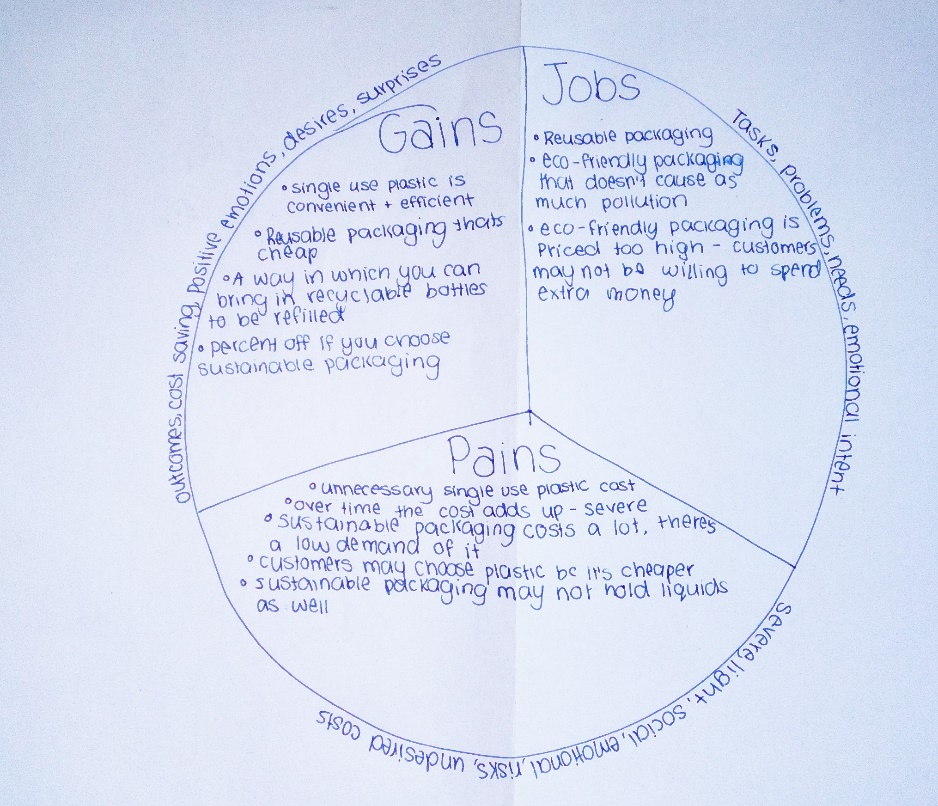 Gains
• single use plastic is
convenient + efficient
• Reusable packaging thats
cheap
• A way in which you can
bring in recyclable bottles
to be refilled
• percent off if you choose
sustainable packaging
outcomes, cost saving, positive emotions, desires, surprises
Jobs
• Reusable packaging
• eco-friendly packaging
that doesn't cause as
much pollution
• eco-friendly packaging is
Priced too high - customers
may not be willing to spend
extra money
Tasks, problems, needs, emotional intent
Pains
• unnecessary single use plastic cast
• over time the cost adds up - severe
• sustainable packaging costs a lot, theres
a low demand of it
• customers may choose plastic bc it's cheaper
• sustainable packaging may not hold liquids
as well
severe, light, social, emotional, risks, undesired costs